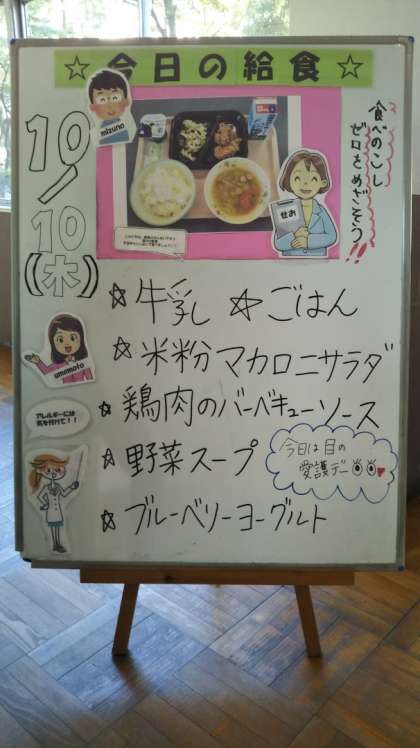 ☆今日の給食☆
mizuno
せお
食べのこし
ゼロをめざそう!!
10/10(木)
☆牛乳 ☆ごはん
☆米粉マカロニサラダ
umemoto
☆鶏肉のバーベキューソース
アレルギーには
気を付けて!!
☆野菜スープ
今日は目の
愛護デー
☆ブルーベリーヨーグルト